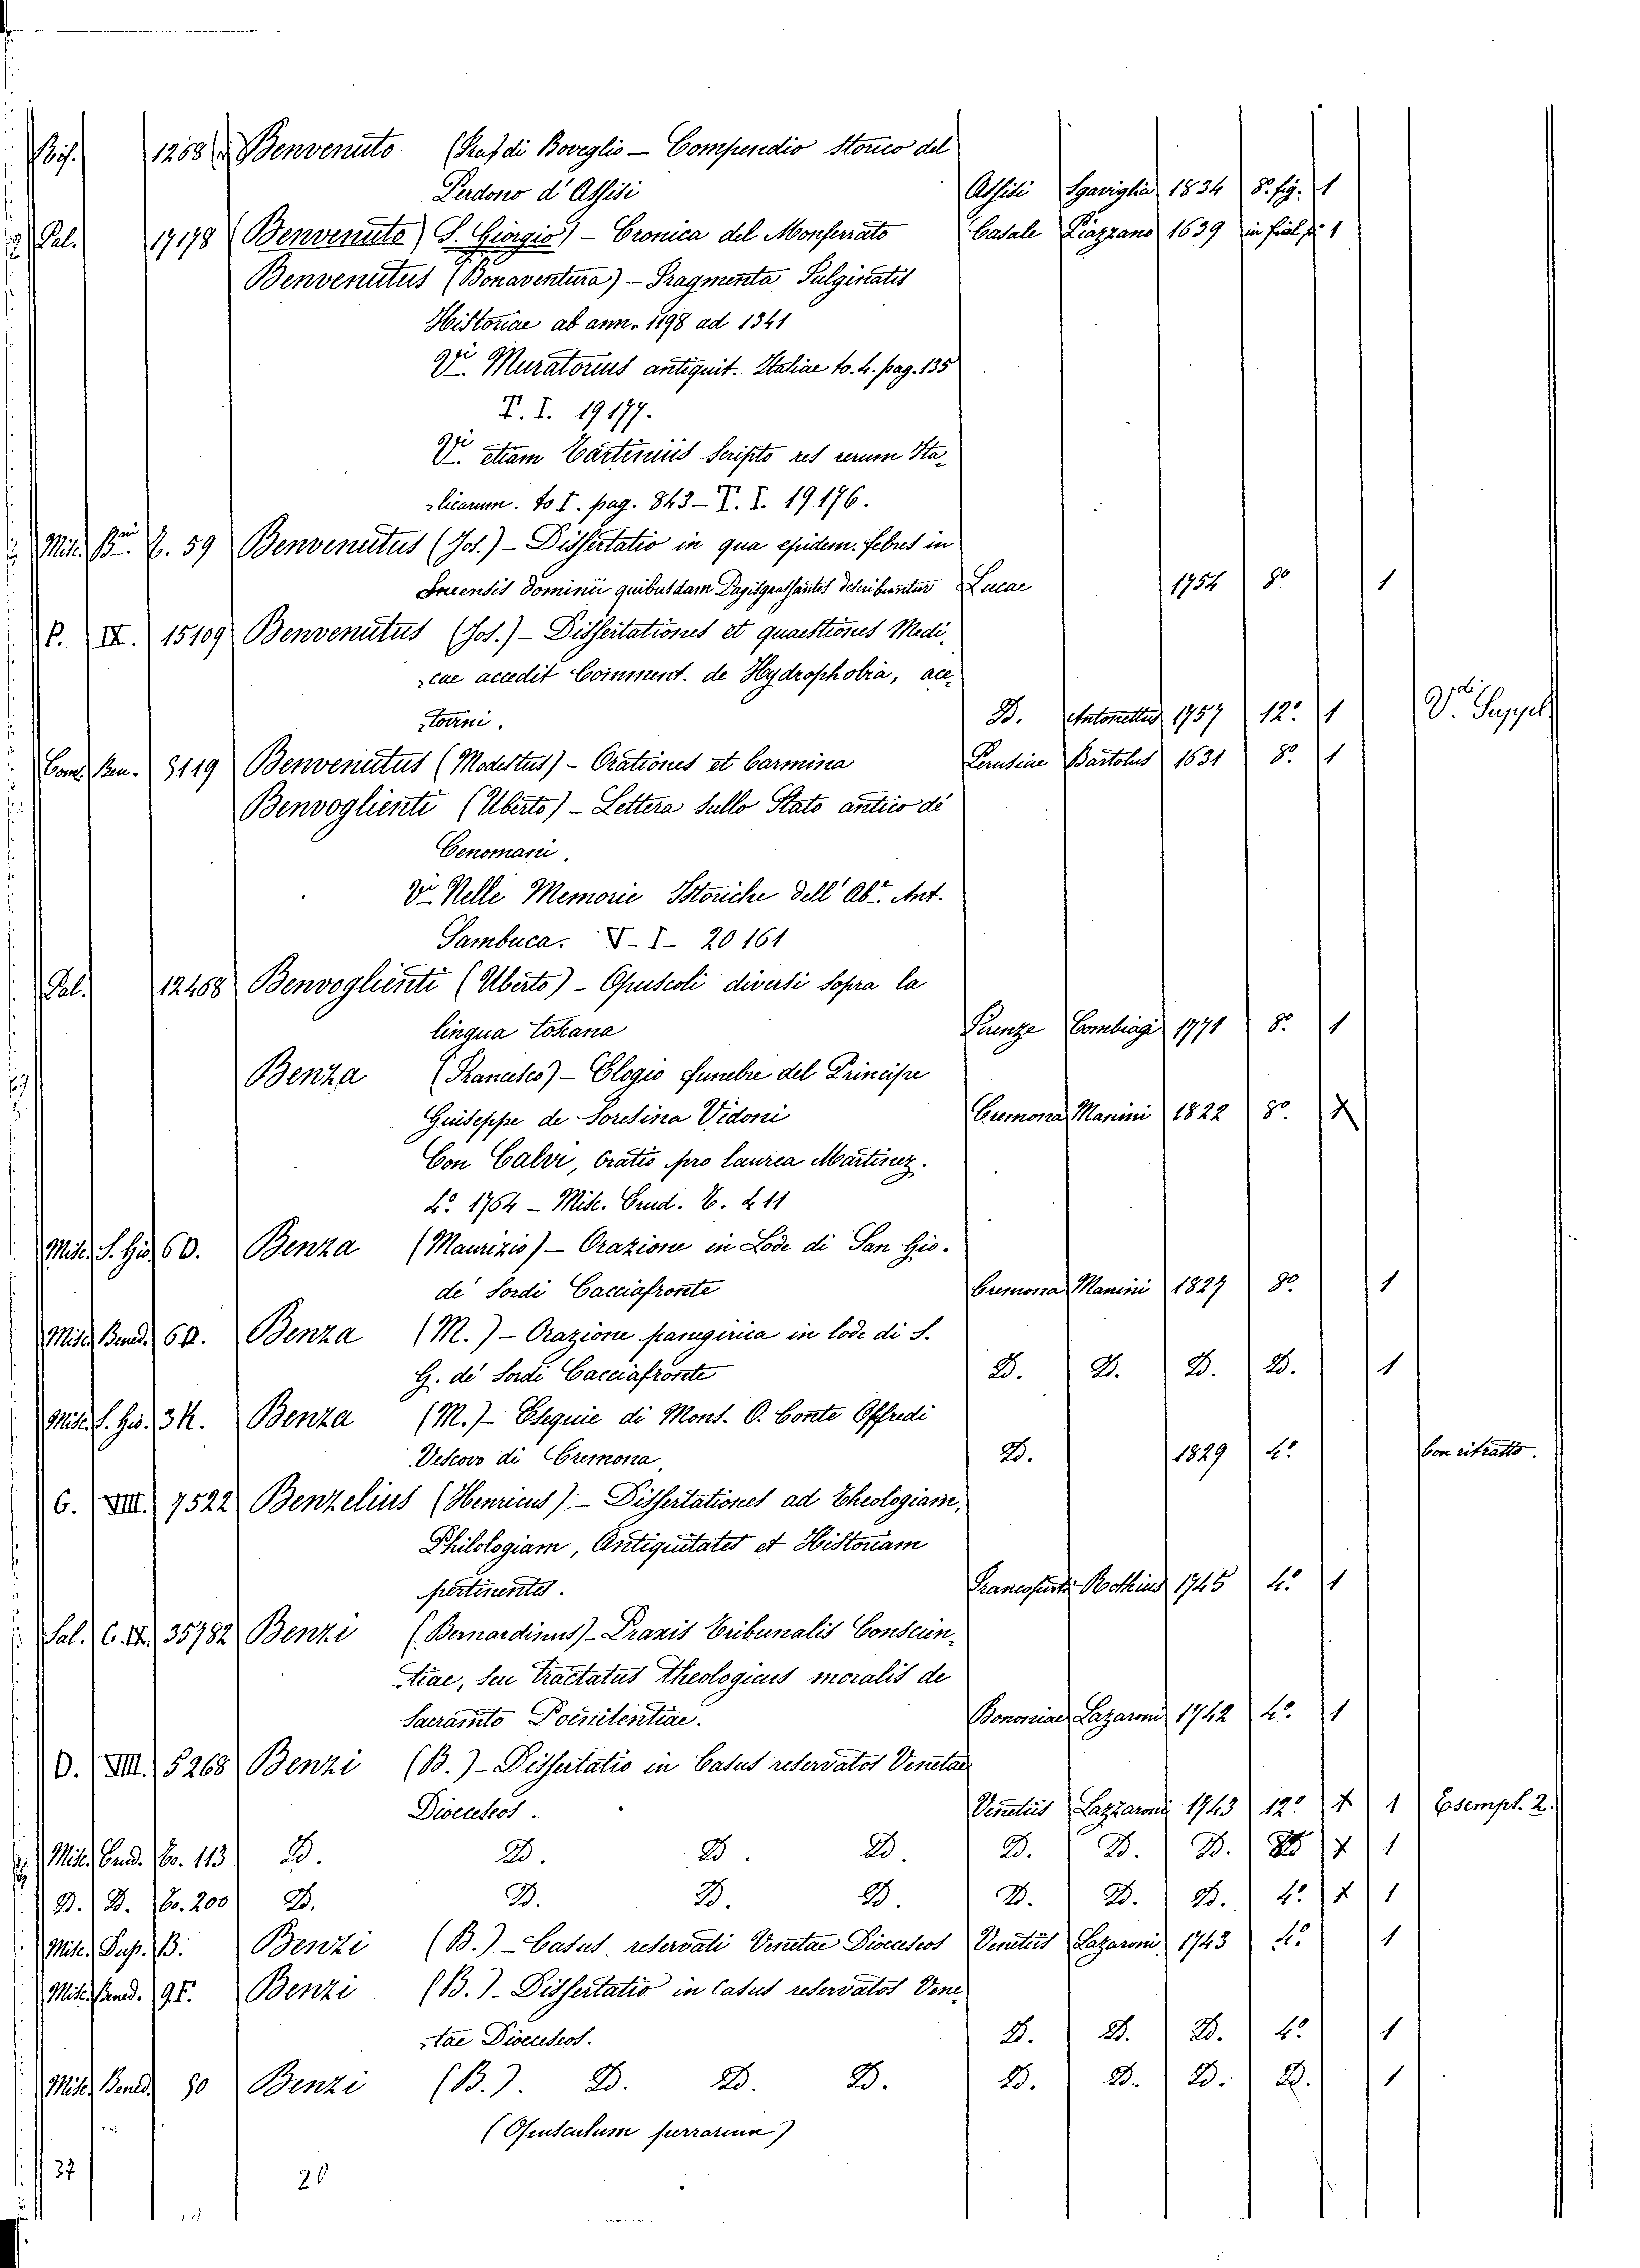 1258 Benvenuto (Raf di Boveglio — Compendio Storico del
Perdono d'Assisi Assisi Sgariglia 1834 8.º fig. 1
Pal. 17178 (Benvenuto) S. Giorgio) - Cronica del Monferrato Casale Piazzano 1639 in 1
Benvenutus (Bonaventura) - Fragmenta Fulginatis
Historiae ab ann. 1198 ad 1341
V. Muratorius antiquit. Italiae to. 4. pag. 135
T. I. 19177.
V. etiam Tartinius Scripto res rerum Ita-
licarum. to I. pag. 843 - T. I. 19176.
Misc. Bn. C. 59 Benvenutus (Jos.) - Dissertatio in qua epidem. febres in
Lucensis Dominii quibusdam Pagis grassantes describuntur Lucae 1754 8º 1
P. IX. 15109 Benvenutus (Jos.) - Dissertationes et quaestiones Medi-
cae accedit Comment. de Hydrophobia, ace-
torni. D. Antonettus 1757 12º 1 V. Suppl.
Com. Ben. 3119 Benvenutus (Modestus) - Orationes et Carmina Perusine Bartolus 1631 8º 1
Benvoglienti (Uberto) - Lettera sullo Stato antico de
Cenomani.
V. Nelle Memorie Istoriche dell'Ab. Ant.
Sambuca. V - I - 20161
Pal. 12468 Benvoglienti (Uberto) - Opuscoli diversi sopra la
lingua toscana Firenze Cambiagi 1771 8º 1
Benza (Francesco) - Elogio funebre del Principe
Giuseppe de Soresina Vidoni Cremona Manini 1822 8º
Con Calvi, Oratio pro laurea Martinez.
4º 1764 - Misc. Erud. C. 411
Misc. S. Gio. 60. Benza (Maurizio) - Orazione in Lode di San Gio.
de Sordi Cacciafronte Cremona Manini 1827 8º 1
Misc. Bened. 6 Benza (M.) - Orazione panegirica in lode di S.
G. de Sordi Cacciafronte D. D. D. D. 1
Misc. S. Gio. 3 Benza (M.) - Esequie di Mons. O. Conte Offredi
Vescovo di Cremona D. 1829 4º Con ritratto.
G. XIII. 7522 Benzelius (Henricus) - Dissertationes ad Theologiam,
Philologiam, Antiquitates et Historiam
pertinentes. Francofurti Rothius 1745 4º 1
Sal. C. IX. 35782 Benzi (Bernardinus) - Praxis Tribunalis Conscien-
tiae, seu tractatus theologicus moralis de
Sacramto Poenitentiae. Bononiae Lazaroni 1742 4º 1
D. VIII. 5268 Benzi (B.) - Dissertatio in Casus reservatos Venetae
Dioeceseos. Venetiis Lazzaroni 1743 12º 1 Esempl. 2.
Misc. Erud. Co. 113 D. D. D. D. D. D. D. 1
D. D. Co. 200 D. D. D. D. D. D. D. 4º 1
Misc. Sup. B. Benzi (B.) - Casus reservati Venetae Dioeceseos Venetiis Lazaroni 1743 4º 1
Misc. Bened. 9 Benzi (B.) - Dissertatio in Casus reservatos Vene-
tae Dioeceseos. D. D. D. 4º 1
Misc. Bened. 90 Benzi (B.). D. D. D. D. D. D. D. 1
(Opusculum
37
26